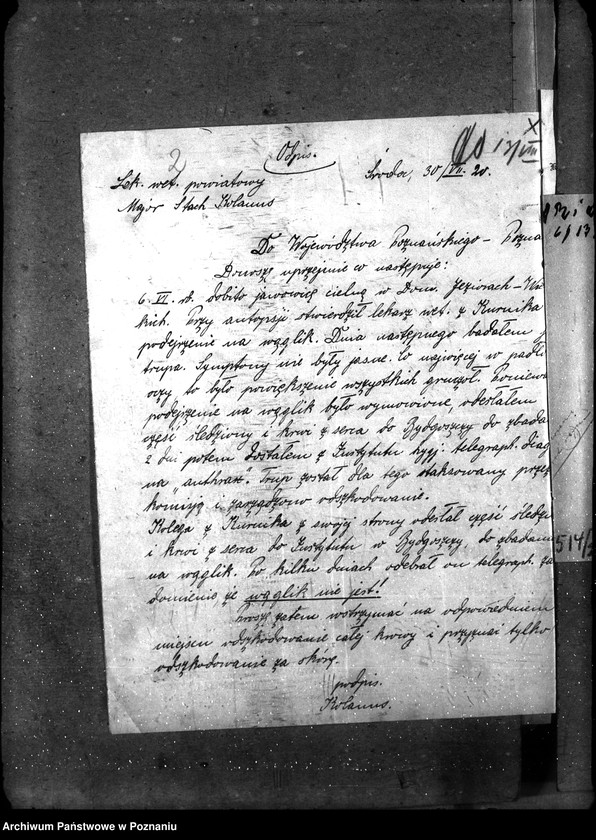 Odpis.
2
do 13/VIII
X
Lek. wet. powiatowy
Środa, 30/VII. 20.
Major Stach Kolanus
Do Województwa Poznańskiego – Pozna
Donoszę uprzejmie co następuje:
6. VI. rb. dobito jałowicę cielną w Dom. Jeziorach-
kich. Przy autopsji stwierdził lekarz wet. z Kurnika
podejrzenie na wąglik. Dnia następnego badałem
trupa. Symptomy nie były jasne. Co najwięcej w padło
oczy to było powiększenie wszystkich gruczoł. Poniewa
podejrzenie na wąglik było wymowione, odesłałem
część śledziony i krwi z serca do Bydgoszczy do zbada
2 dni potem dostałem z Instytutu hyg. telegraph. diag
na "anthrax". Trup został dla tego otaksowany przez
komisję i zarządzono odszkodowanie.
Kolega z Kurnika z swojej strony odesłał część śledzi
i krwi z serca do Instytutu w Bydgoszczy, do zbadani
na wąglik. Po kilku dniach odebrał on telegraph. za
domienie, że wąglik nie jest!
Proszę zatem wstrzymać na odpowiedniem
miejscu odszkodowanie całej krowy i przyznać tylko
odszkodowanie za skórę.
podpis.
Kolanus.
6/13
514/
Archiwum Państwowe w Poznaniu